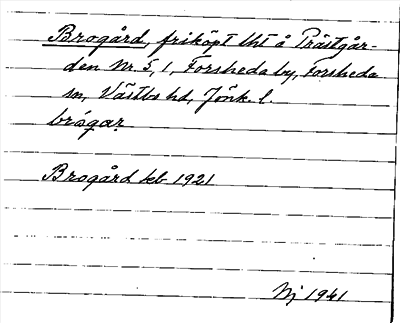 Brogård, friköpt lht å Prästgår-
den Nr. 5,1, Forsheda by, Forsheda
sn, Västbo hd, Jönk. l.
brágar
Brogård kb 1921
Nj 1941